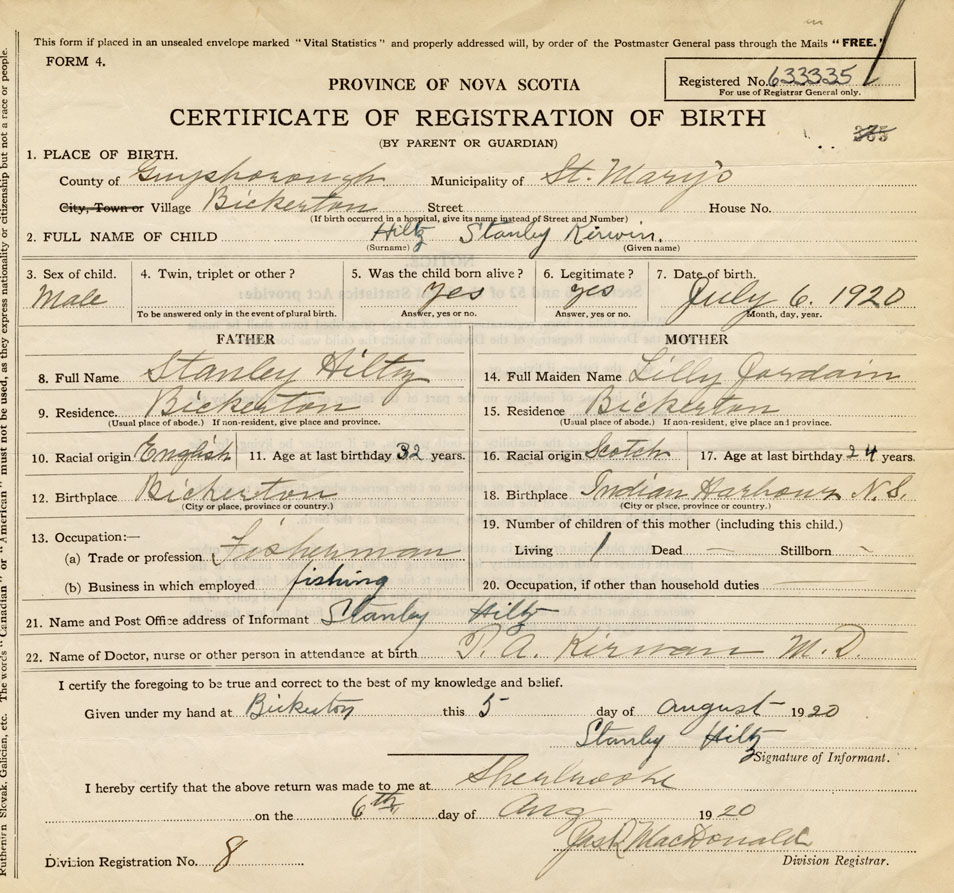 This form if placed in an unsealed envelope marked "Vital Statistics" and properly addressed will, by order of the Postmaster General pass through the Mails "FREE."
FORM 4.
Registered No. 633335
For use of Registrar General only.
PROVINCE OF NOVA SCOTIA
CERTIFICATE OF REGISTRATION OF BIRTH
(BY PARENT OR GUARDIAN)
1. PLACE OF BIRTH.
County of Guysborough Municipality of St. Mary's
City, Town or Village Bickerton Street House No.
(If birth occurred in a hospital, give its name instead of Street and Number)
2. FULL NAME OF CHILD Hiltz Stanley Kirwin.
(Surname) (Given name)
3. Sex of child. 4. Twin, triplet or other? 5. Was the child born alive? 6. Legitimate? 7. Date of birth.
Male yes yes July 6. 1920
To be answered only in the event of plural birth. Answer, yes or no. Answer, yes or no. Month, day, year.
FATHER MOTHER
8. Full Name Stanley Hiltz 14. Full Maiden Name Lilly Jordain
9. Residence Bickerton 15. Residence Bickerton
(Usual place of abode.) If non-resident, give place and province. (Usual place of abode.) If non-resident, give place and province.
10. Racial origin English 11. Age at last birthday 32 years. 16. Racial origin Scotch 17. Age at last birthday 24 years.
12. Birthplace Bickerton 18. Birthplace Indian Harbour N.S.
(City or place, province or country.) (City or place, province or country.)
13. Occupation:— 19. Number of children of this mother (including this child.)
(a) Trade or profession Fisherman Living 1 Dead — Stillborn -
(b) Business in which employed fishing 20. Occupation, if other than household duties
21. Name and Post Office address of Informant Stanley Hiltz
22. Name of Doctor, nurse or other person in attendance at birth P. A. Kirwan M.D.
I certify the foregoing to be true and correct to the best of my knowledge and belief.
Given under my hand at Bickerton this 5 day of august 1920
Stanley Hiltz
Signature of Informant.
I hereby certify that the above return was made to me at Sherbrooke
on the 6th day of Aug 1920
MacDonald
Division Registration No. 8 Division Registrar.
Ruthenian Slovak, Galician, etc. The words "Canadian" or "American" must not be used, as they express nationality or citizenship but not a race or people.